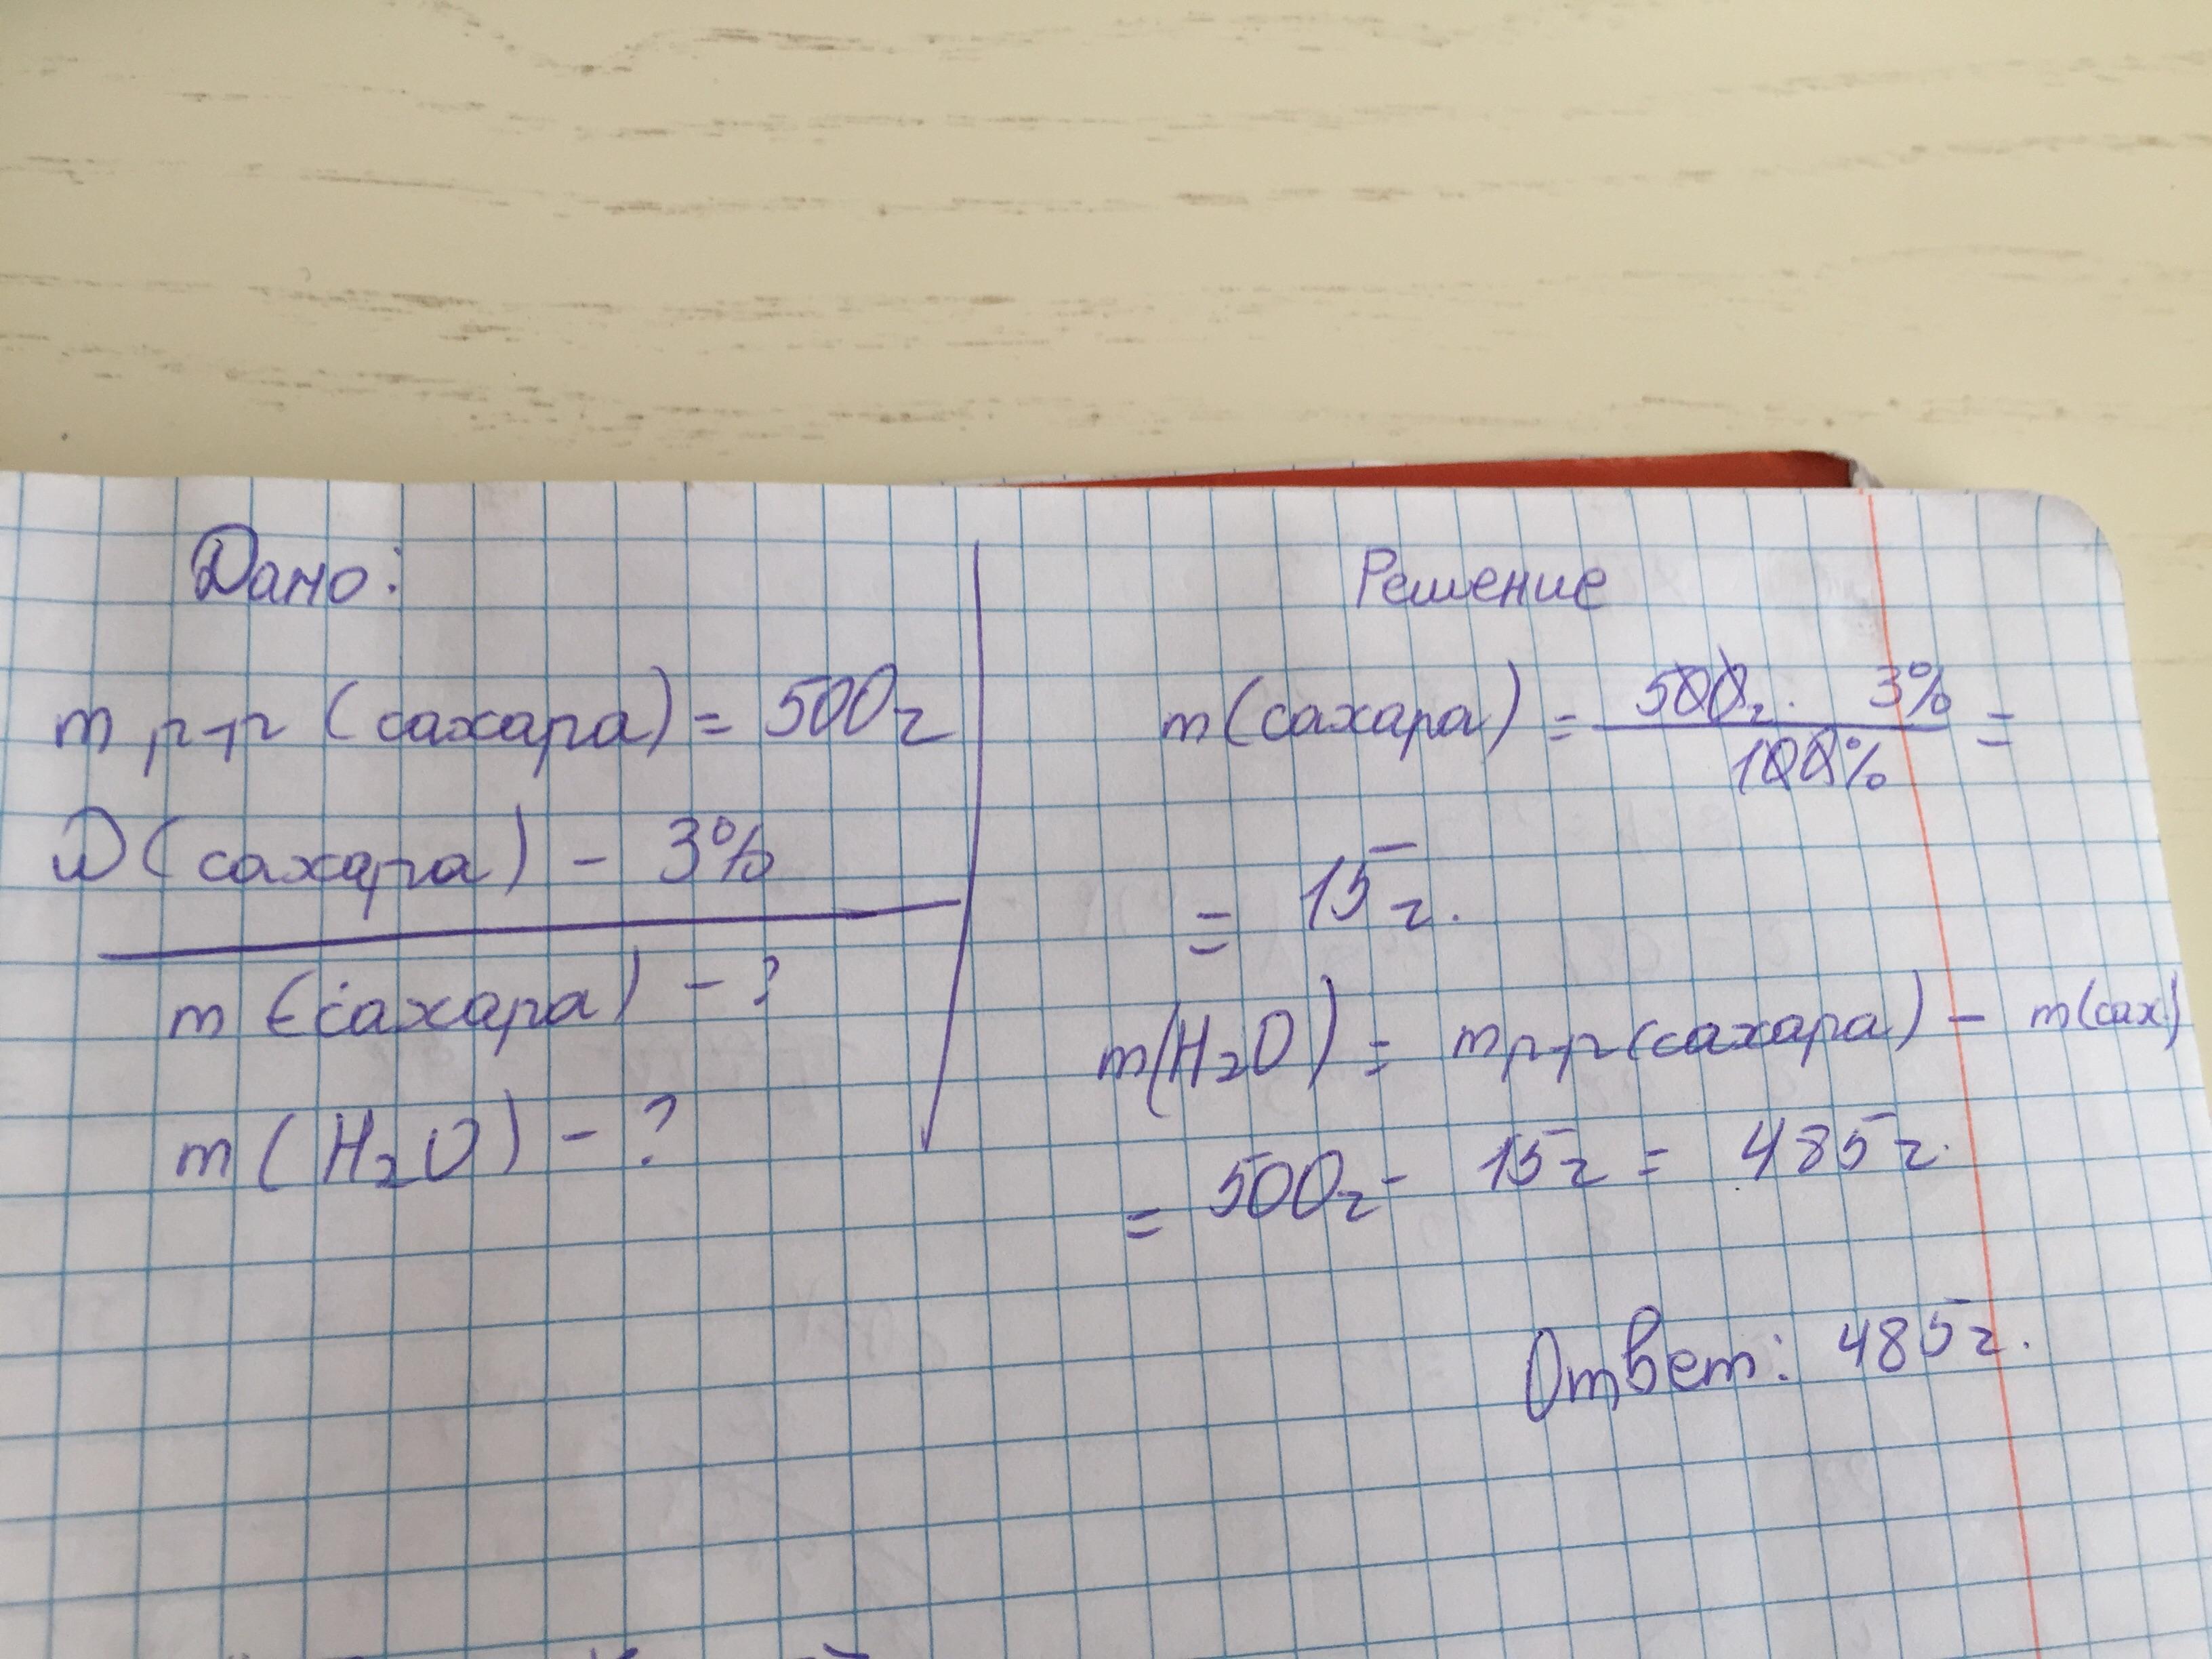 Дано:
m р-р (сахара) = 500г
ω(сахара) - 3%
m (сахара) - ?
m(H₂O) - ?
Решение
m(сахара) = 500г · 3% / 100% =
= 15г.
m(H₂O) = m р-р(сахара) - m(сах.)
= 500г - 15г = 485г.
Ответ: 485г.